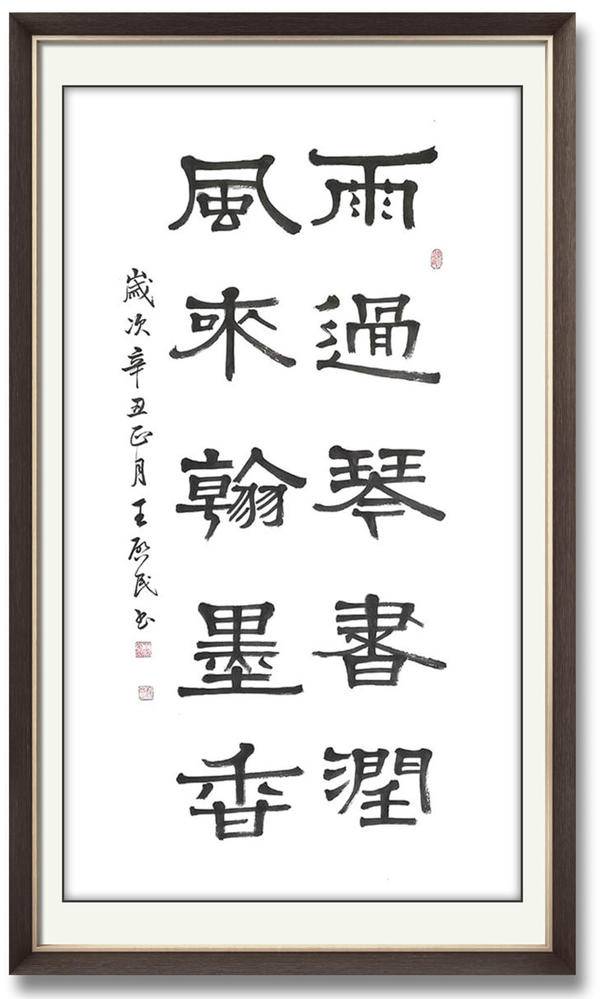 雨過琴書潤
風來翰墨香
歲次辛丑正月王啟民书